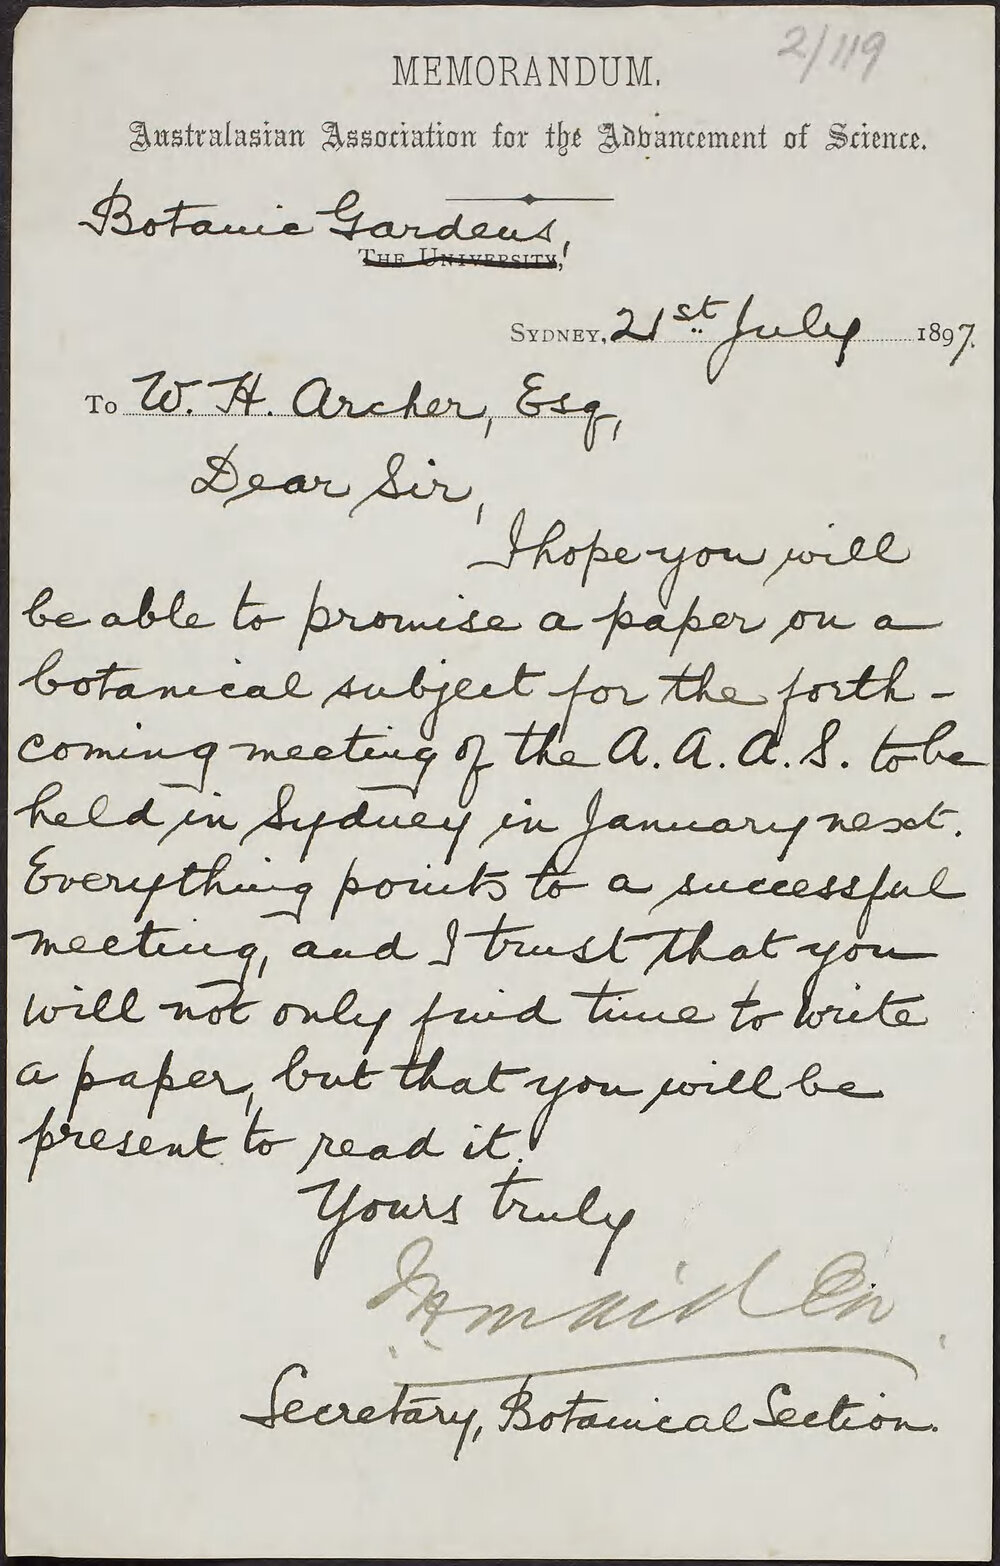 2/119
MEMORANDUM.
Australasian Association for the Advancement of Science.
Botanic Gardens,
THE UNIVERSITY,
SYDNEY, 21st July 1897.
To W. H. Archer, Esq,
Dear Sir,
I hope you will
be able to promise a paper on a
botanical subject for the forth-
coming meeting of the A. A. A. S. to be
held in Sydney in January next.
Everything points to a successful
meeting, and I trust that you
will not only find time to write
a paper, but that you will be
present to read it.
Yours truly
J H Maiden
Secretary, Botanical Section.